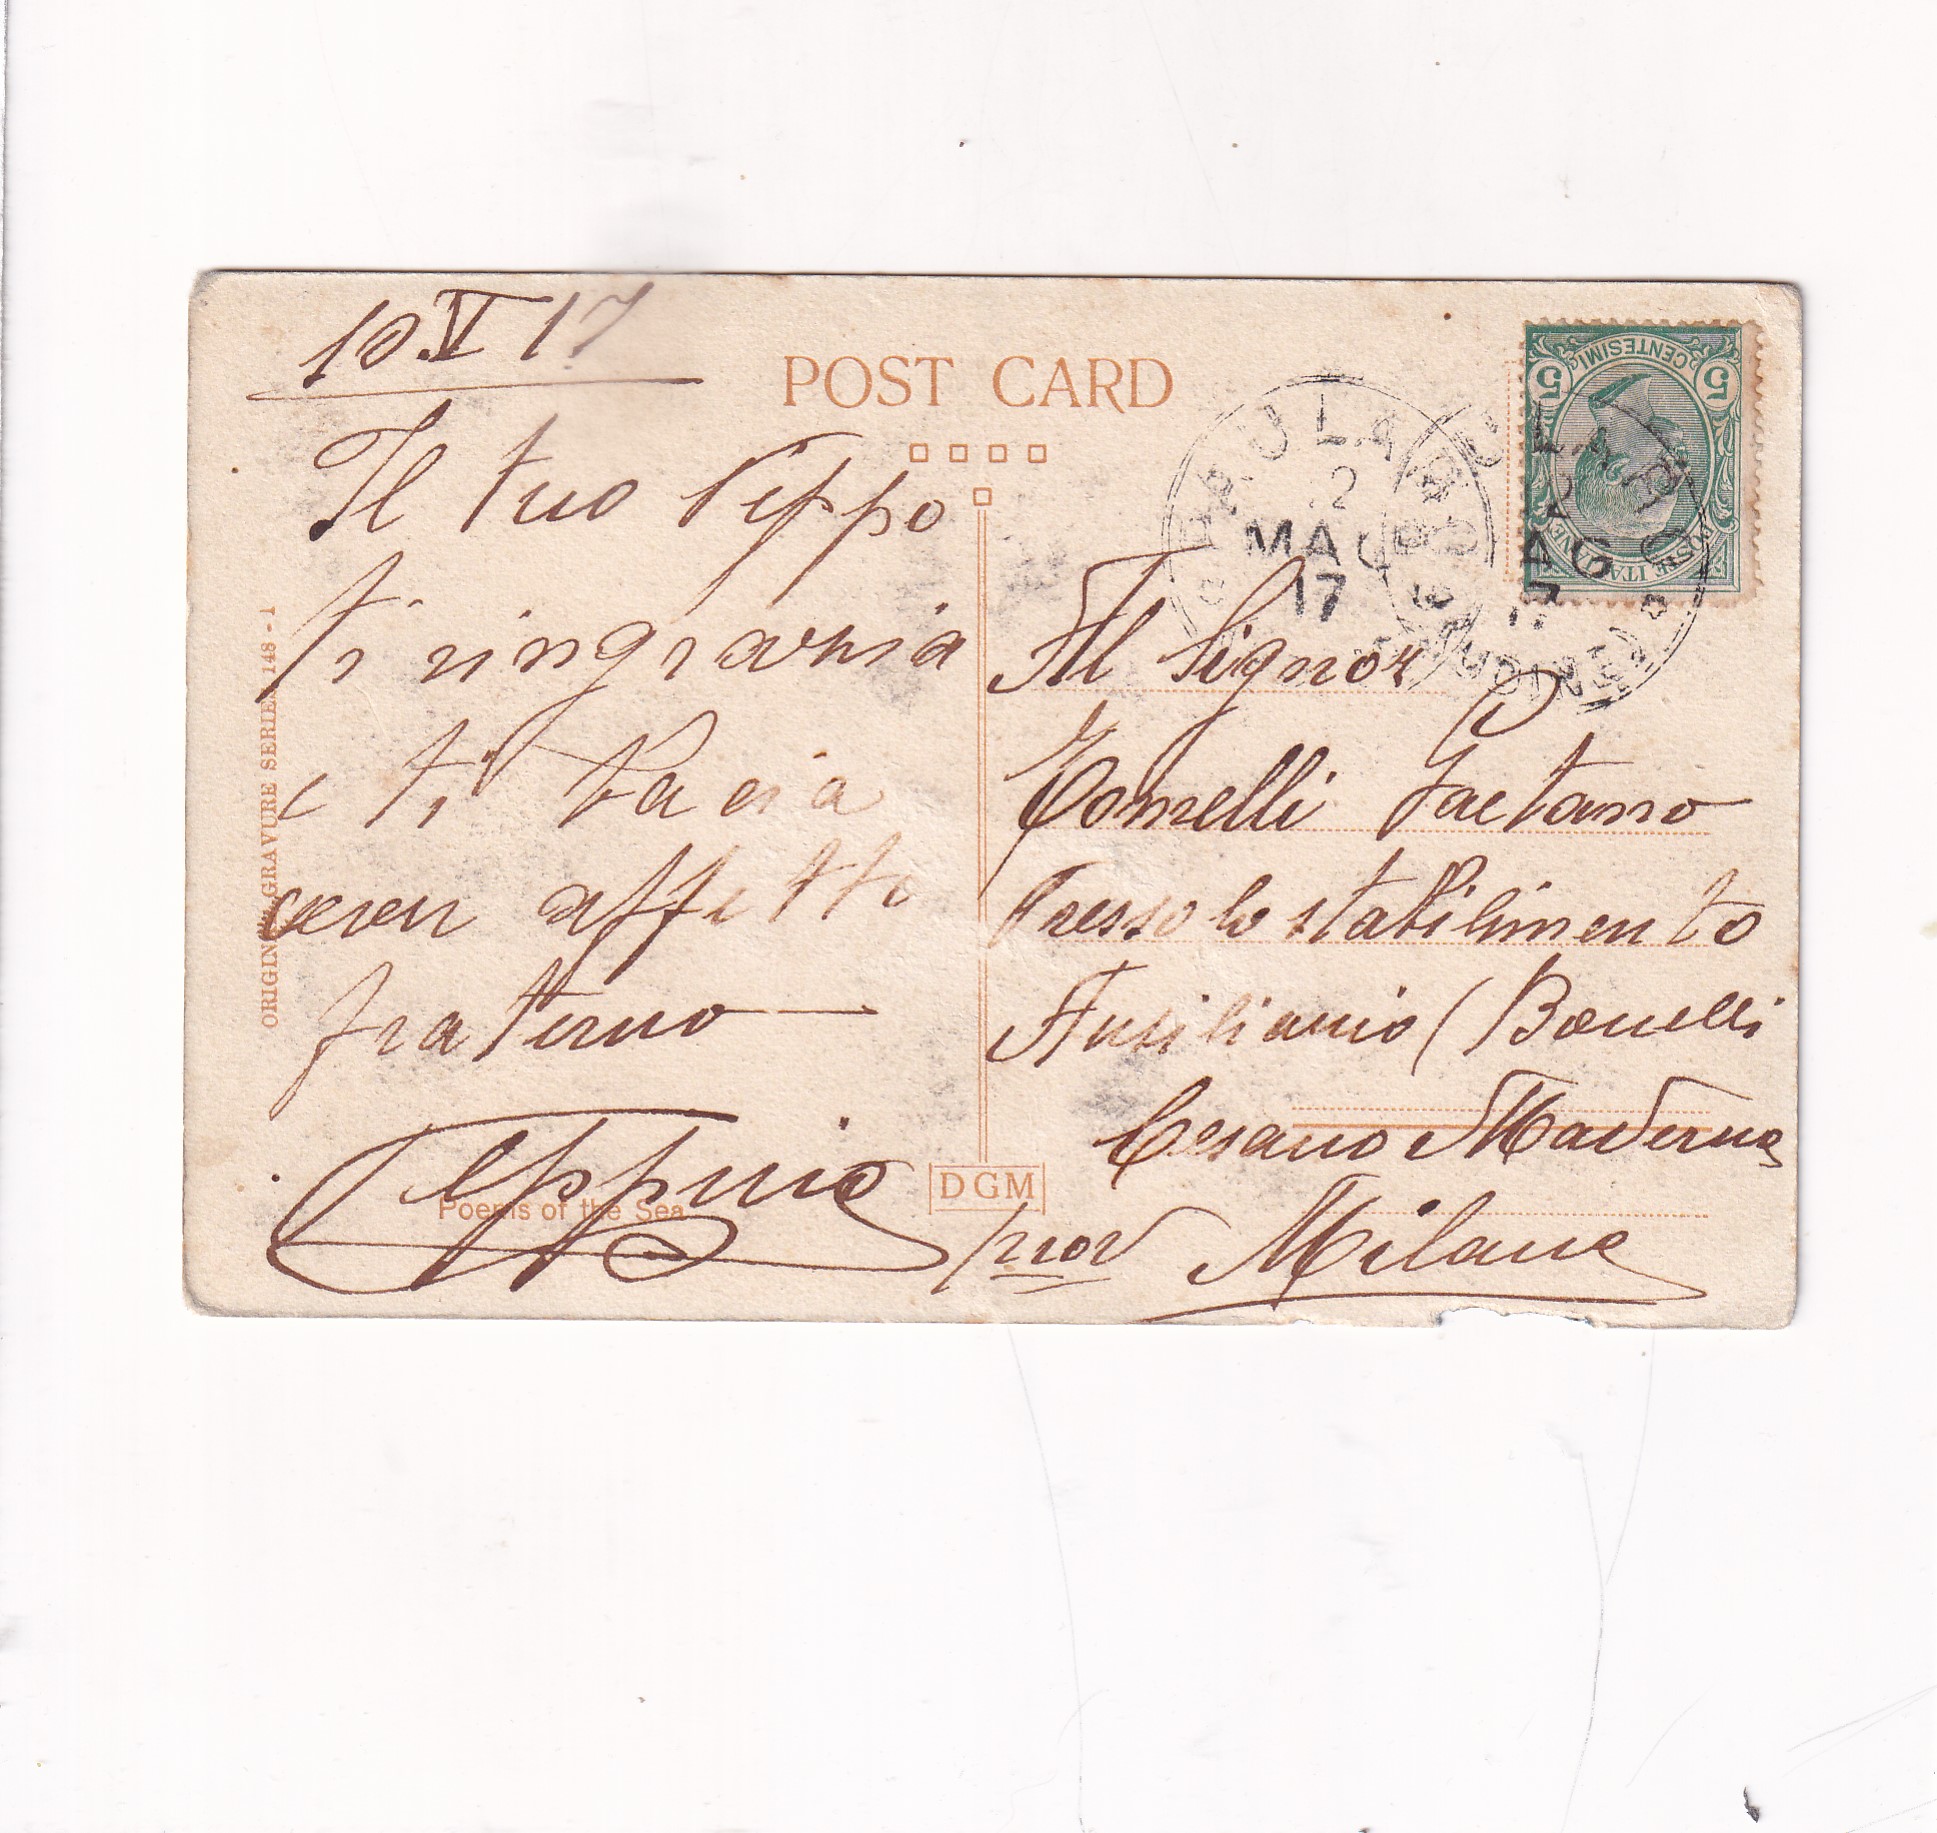 10.V 17
POST CARD
Il tuo Peppo
ti ringrazia
e ti bacia
con affetto
fraterno —
Peppino
Poems of the Sea
ORIGINAL GRAVURE SERIE 148 - 1
DGM
12
MAG
17
5 CENTESIMI 5
POSTE ITALIANE
Al Signor
Comelli Gaetano
Presso lo stabilimento
Ausiliario (Bonelli
Cesano Maderno
prov Milano